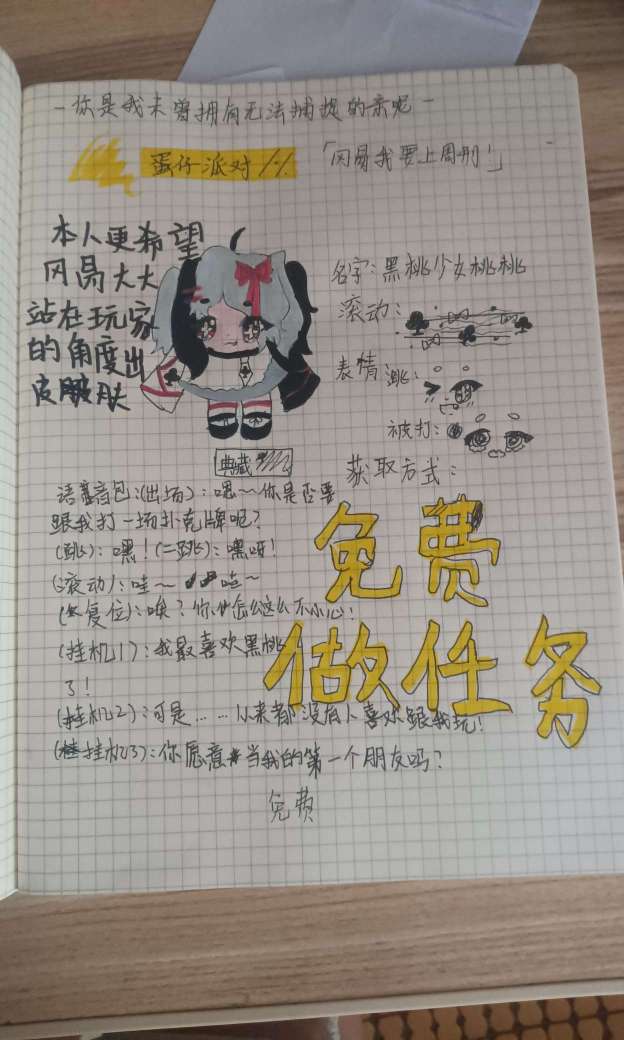 -你是我未曾拥有无法捕捉的亲昵-
蛋仔派对
「网易我要上周刊!」
本人更希望
网易大大
站在玩家
的角度出
皮肤
名字:黑桃少女桃桃
滚动:
表情:跳:
被打:
典藏
获取方式:
语音包:(出场):嘿~你是否要
跟我打一场扑克牌呢?
(跳):嘿!(二跳):嘿呀!
(滚动):哇~
(复位):唉?你怎么这么不小心!
(挂机1):我最喜欢黑桃
了!
(挂机2):可是……从来都没有人喜欢跟我玩!
(挂机3):你愿意当我的第一个朋友吗?
免费
做任务
免费